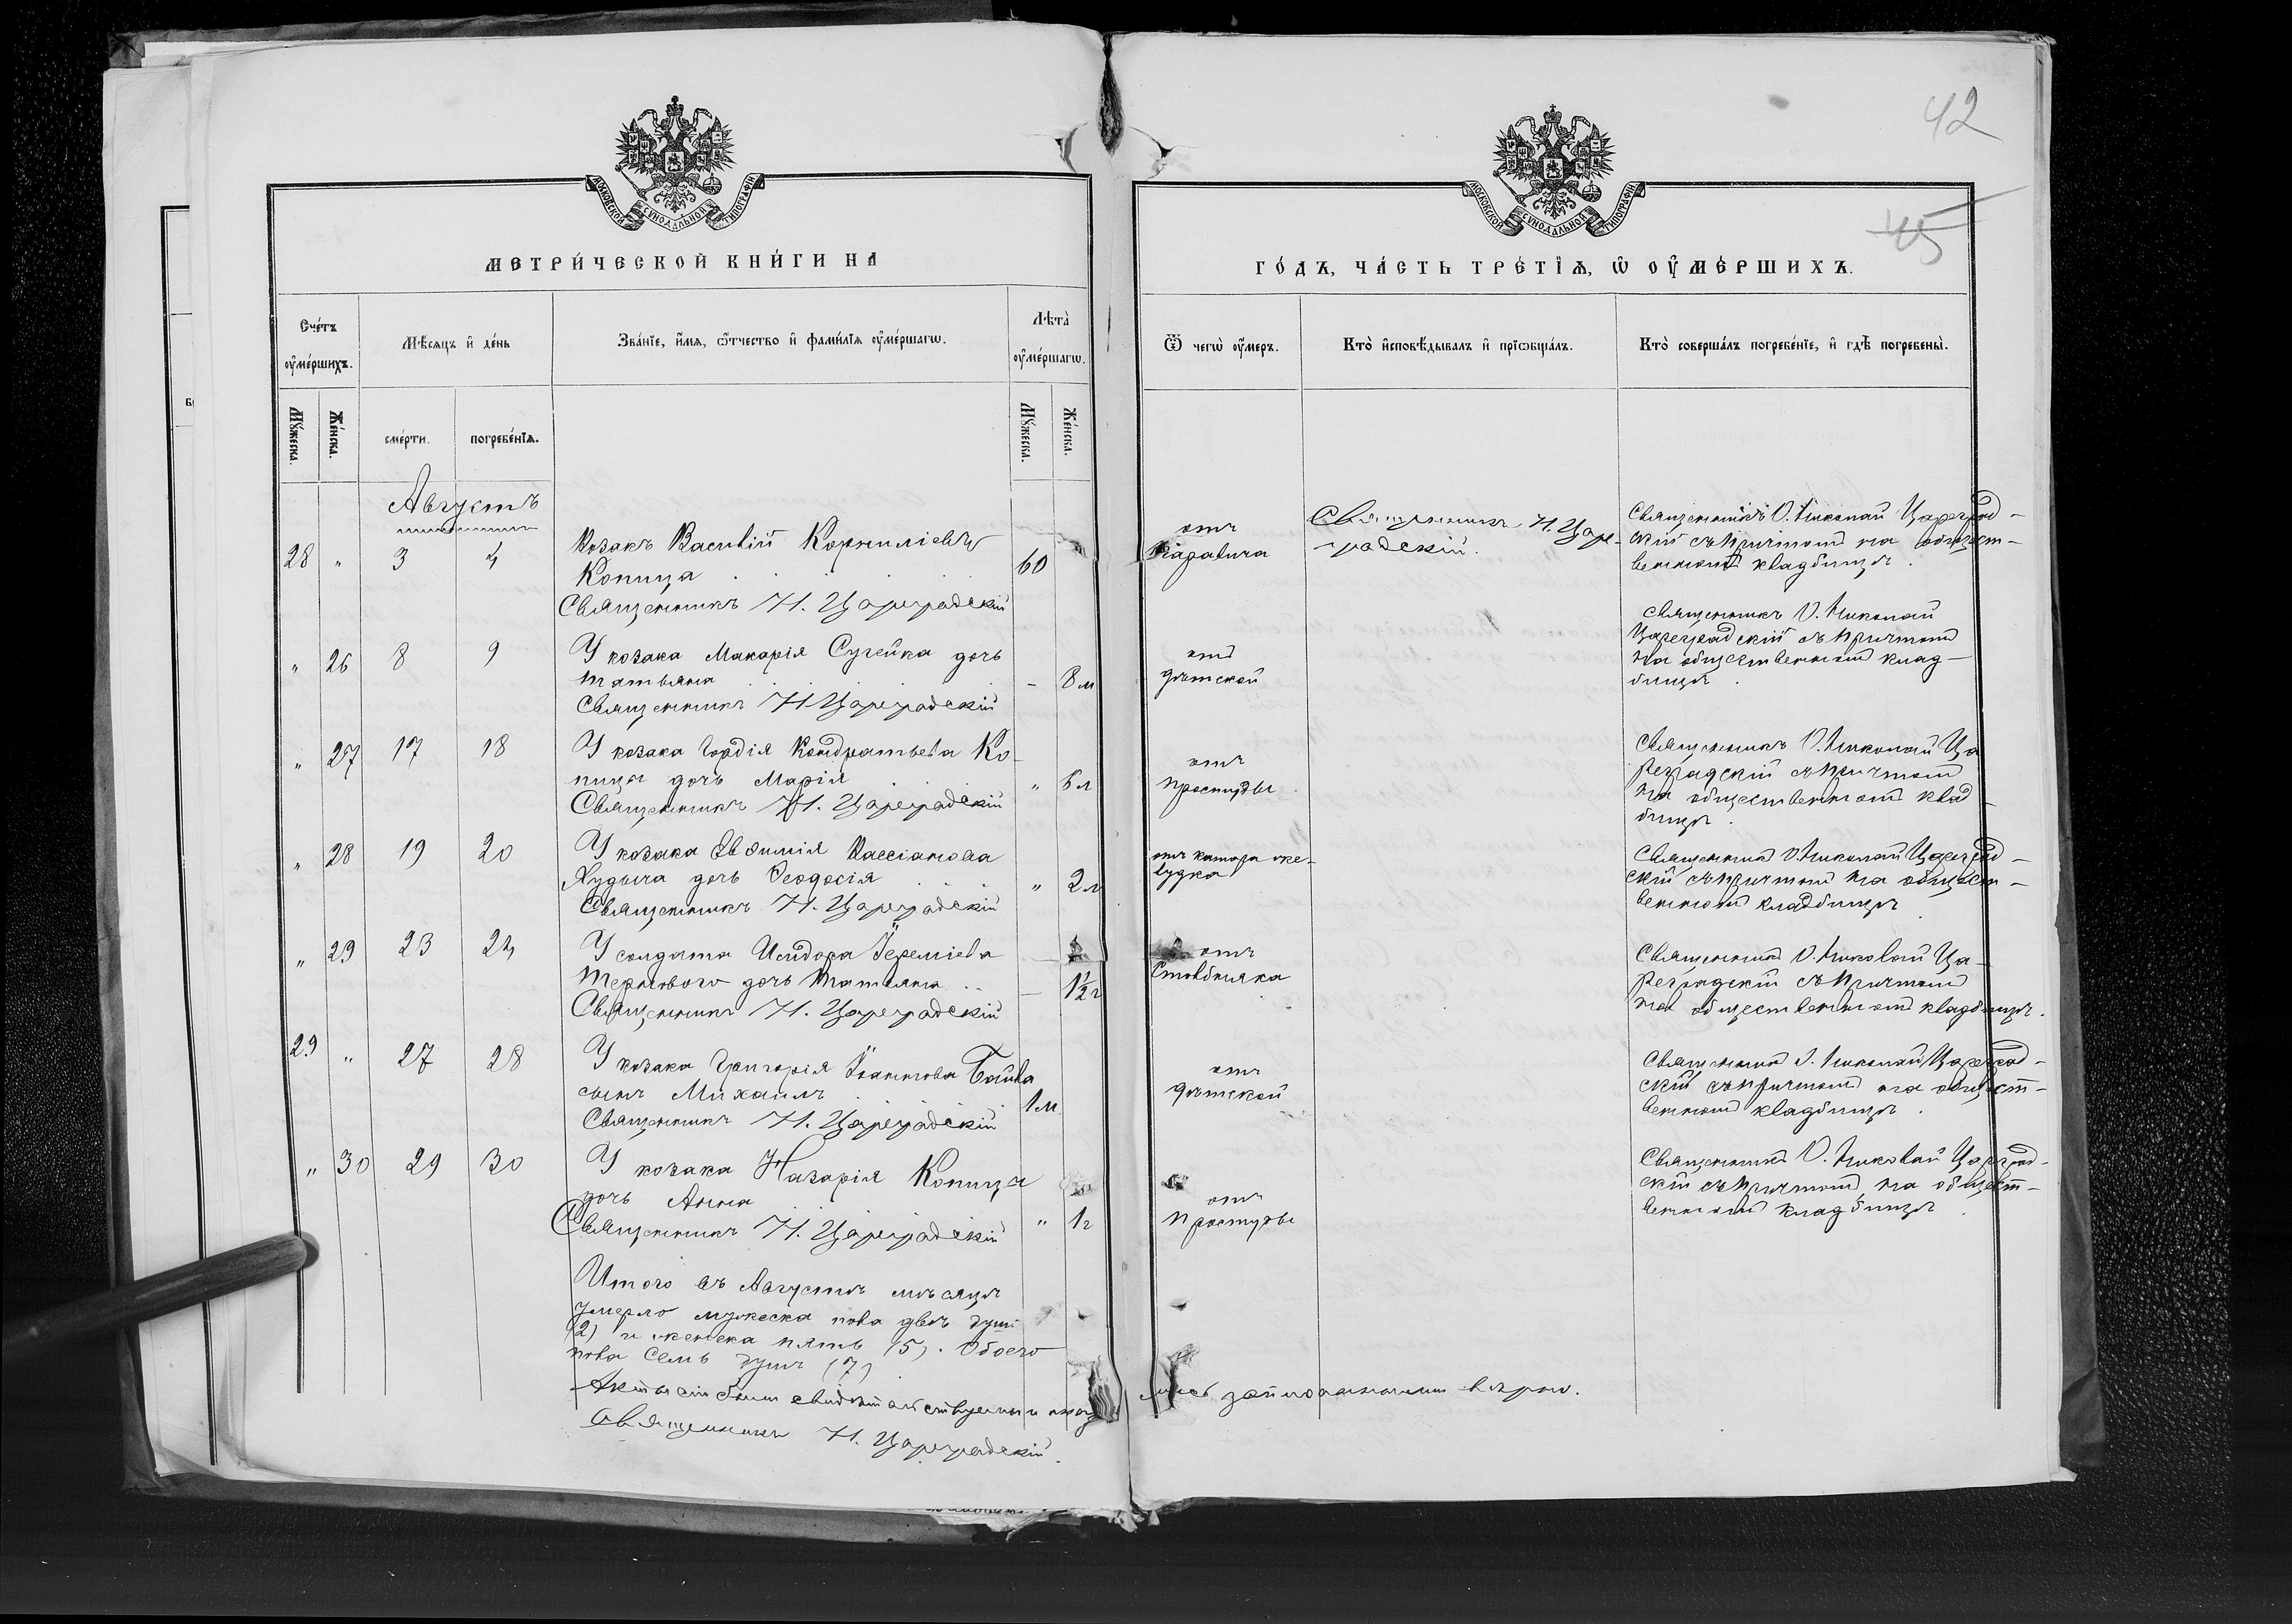 42
45
МОСКОВСКОЙ СѴНОДАЛЬНОЙ ТИПОГРАФІИ
МОСКОВСКОЙ СѴНОДАЛЬНОЙ ТИПОГРАФІИ
МЕТРИ́ЧЕСКОЙ КНИ́ГИ НА
ГО́ДЪ, ЧА́СТЬ ТРЕ́ТІѦ, Ѡ ОУ҆МЕ́РШИХЪ.
Сче́тъ оу҆ме́ршихъ.
Мѣ́сѧцъ и҆ де́нь
Зва́нїе, и҆́мѧ, ѻ҆́тчество и҆ фами́лїѧ оу҆ме́ршагѡ.
Лѣта̀ оу҆ме́ршагѡ.
Ѿ чегѡ̀ оу҆́меръ.
Кто̀ и҆сповѣ́дывалъ и҆ прїѡбща́лъ.
Кто̀ соверша́лъ погребе́нїе, и҆ гдѣ̀ погребены̀.
Мꙋ́жеска. Же́нска. сме́рти. погребе́нїѧ. Мꙋ́жеска. Же́нска.
Августъ
28 " 3 4
Козакъ Василій Корнилієвъ
Копица 60
Священникъ Н. Цареградскій
отъ
Священникъ Н. Царе-
градскій.
Священникъ О. Николай Цареград-
скій съ причтомъ на общест-
венномъ кладбищѣ.
" 26 8 9
У козака Макарія Сугейка дочь
Татьяна - 8 м
Священникъ Н. Цареградскій
отъ
дѣтской
Священникъ О. Николай
Цареградскій съ причтомъ
на общественномъ клад-
бищѣ.
" 27 17 18
У козака Гордія Кондратьева Ко-
пицы дочь Марія " 6 л
Священникъ Н. Цареградскій
отъ
простуды.
Священникъ О. Николай Ца
реградскій съ причтомъ
на общественномъ клад-
бищѣ.
" 28 19 20
У козака Евѳимія Кассіанова
дочь Ѳеодосія " 2 л
Священникъ Н. Цареградскій
отъ катара же-
лудка
Священникъ О. Николай Цареград-
скій съ причтомъ на общест-
венномъ кладбищѣ
" 29 23 24
У солдата Исидора Іереміева
Терноваго дочь Татьяна - 1½ г
Священникъ Н. Цареградскій
отъ
Столбняка
Священникъ О. Николай Ца-
реградскій съ причтомъ
на общественномъ кладбищѣ.
29 " 27 28
У козака Григорія Іоаннова Байва
сынъ Михаилъ 1 м
Священникъ Н. Цареградскій
отъ
дѣтской
Священникъ О. Николай Цареград-
скій съ причтомъ на общест-
венномъ кладбищѣ.
" 30 29 30
У козака Назарія Копицы
дочь Анна " 1 г
Священникъ Н. Цареградскій
отъ
простуды
Священникъ О. Николай Цареград-
скій съ причтомъ на общест-
венномъ кладбищѣ.
Итого въ Августѣ мѣсяцѣ
умерло мужеска пола двѣ души
(2) и женска пять (5). Обоего
пола семь душъ (7)
Акты сіи были свидѣтельствуемы и оказались записанными вѣрно.
Священникъ Н. Цареградскій.